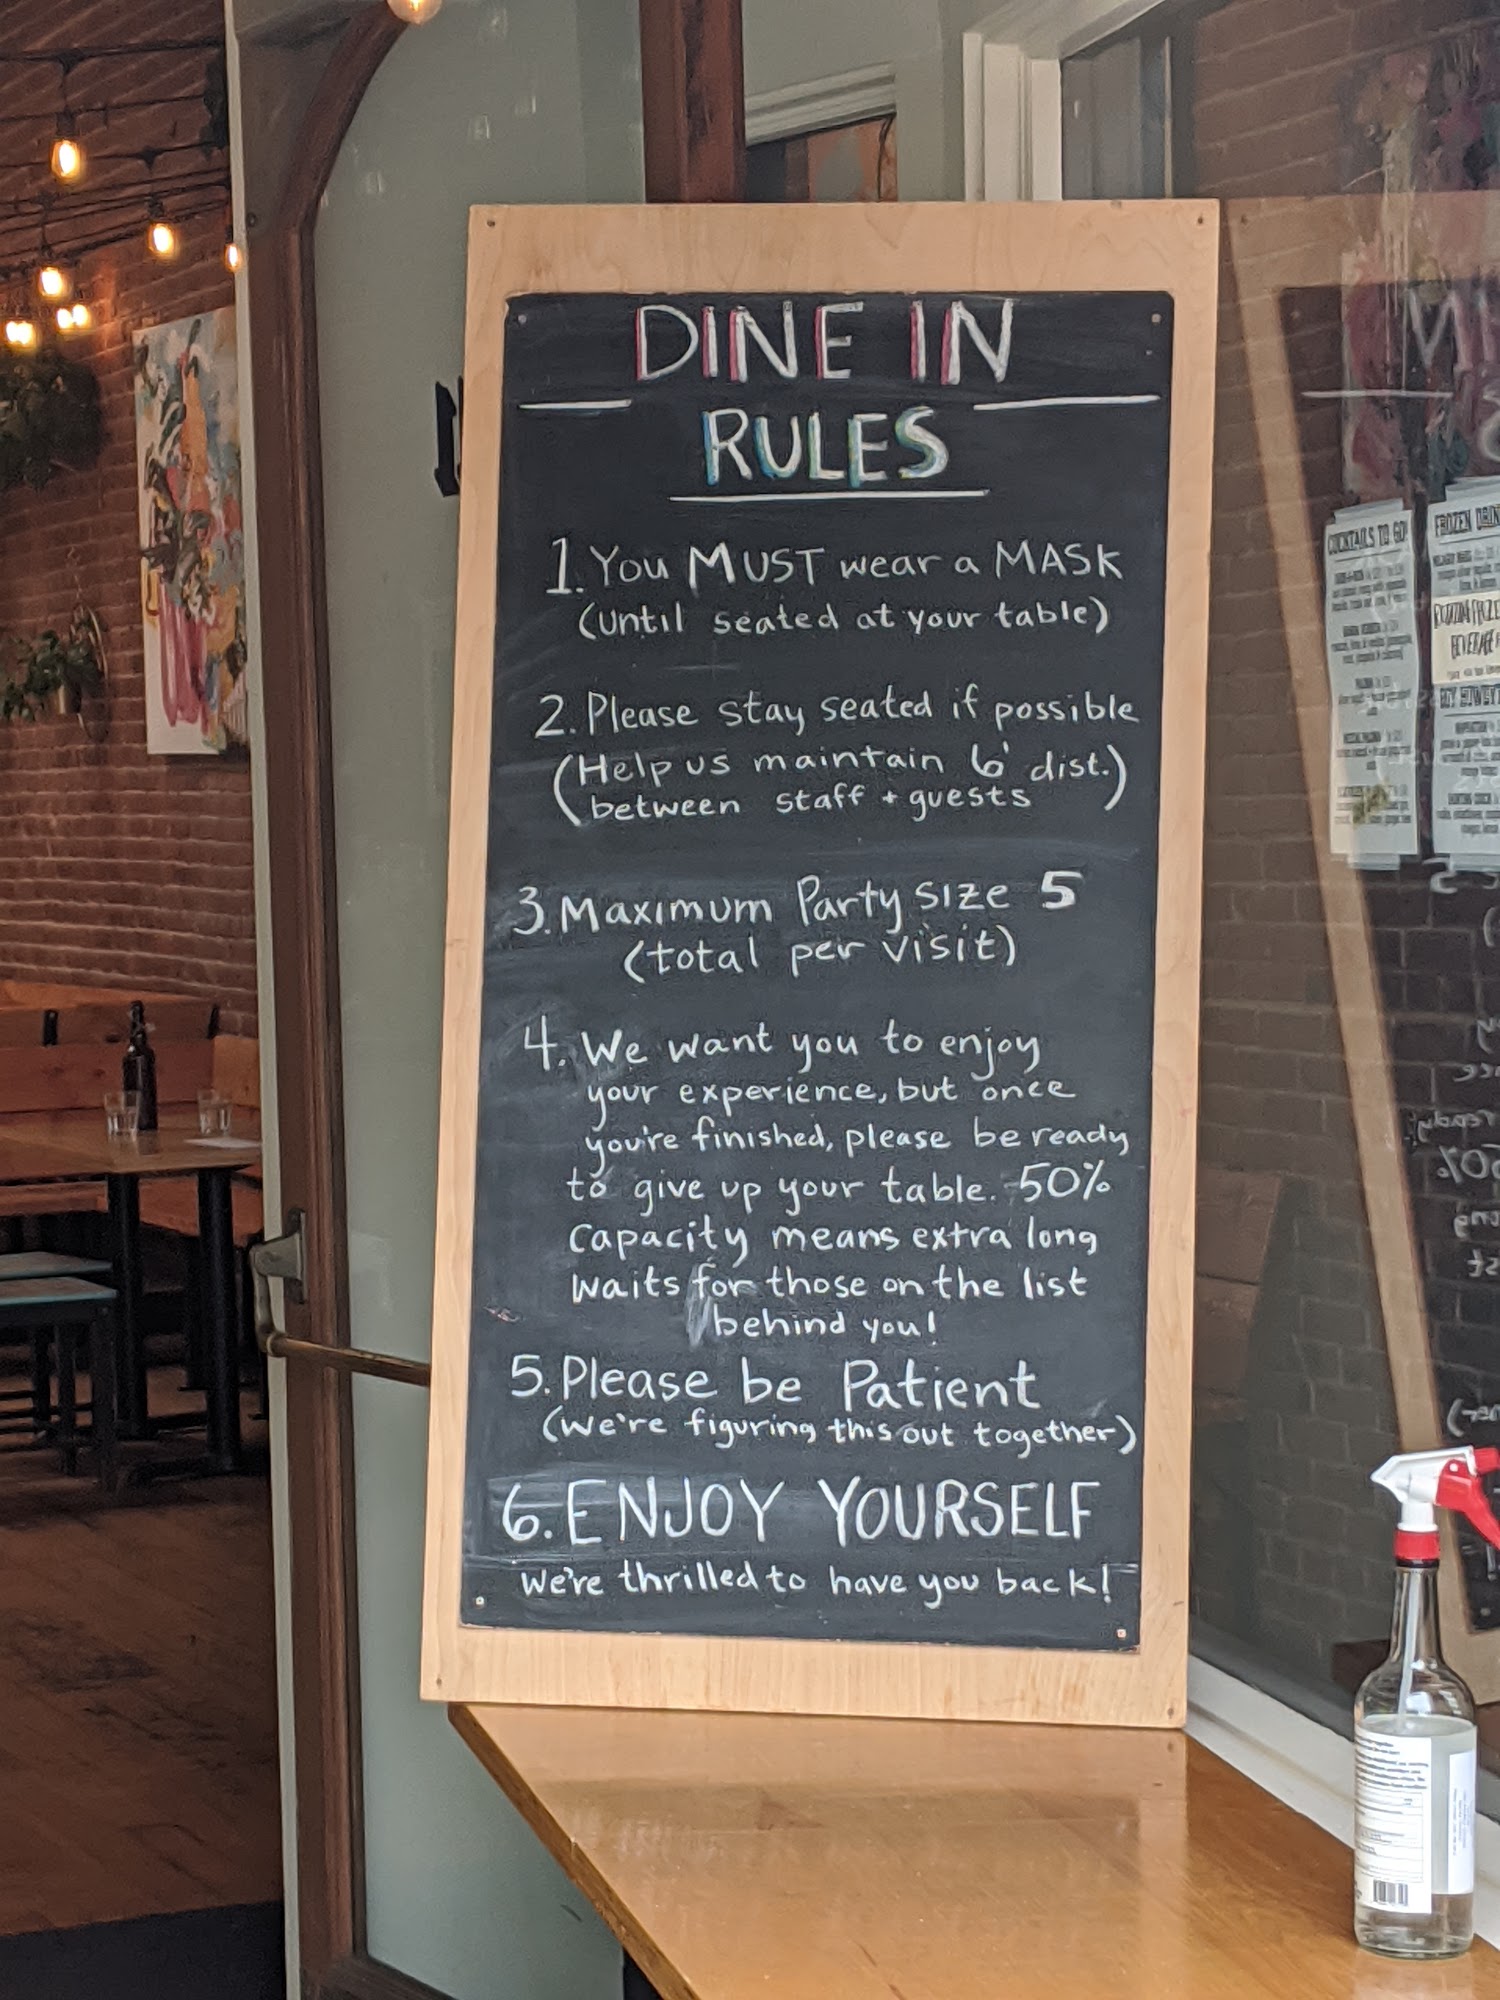 DINE IN
RULES
1. You MUST wear a MASK
(until seated at your table)
2. Please stay seated if possible
(Help us maintain 6' dist.)
between staff + guests
3. Maximum Party Size 5
(total per visit)
4. We want you to enjoy
your experience, but once
you're finished, please be ready
to give up your table. 50%
capacity means extra long
waits for those on the list
behind you!
5. Please be Patient
(we're figuring this out together)
6. ENJOY YOURSELF
we're thrilled to have you back!
COCKTAILS TO GO!
FROZEN